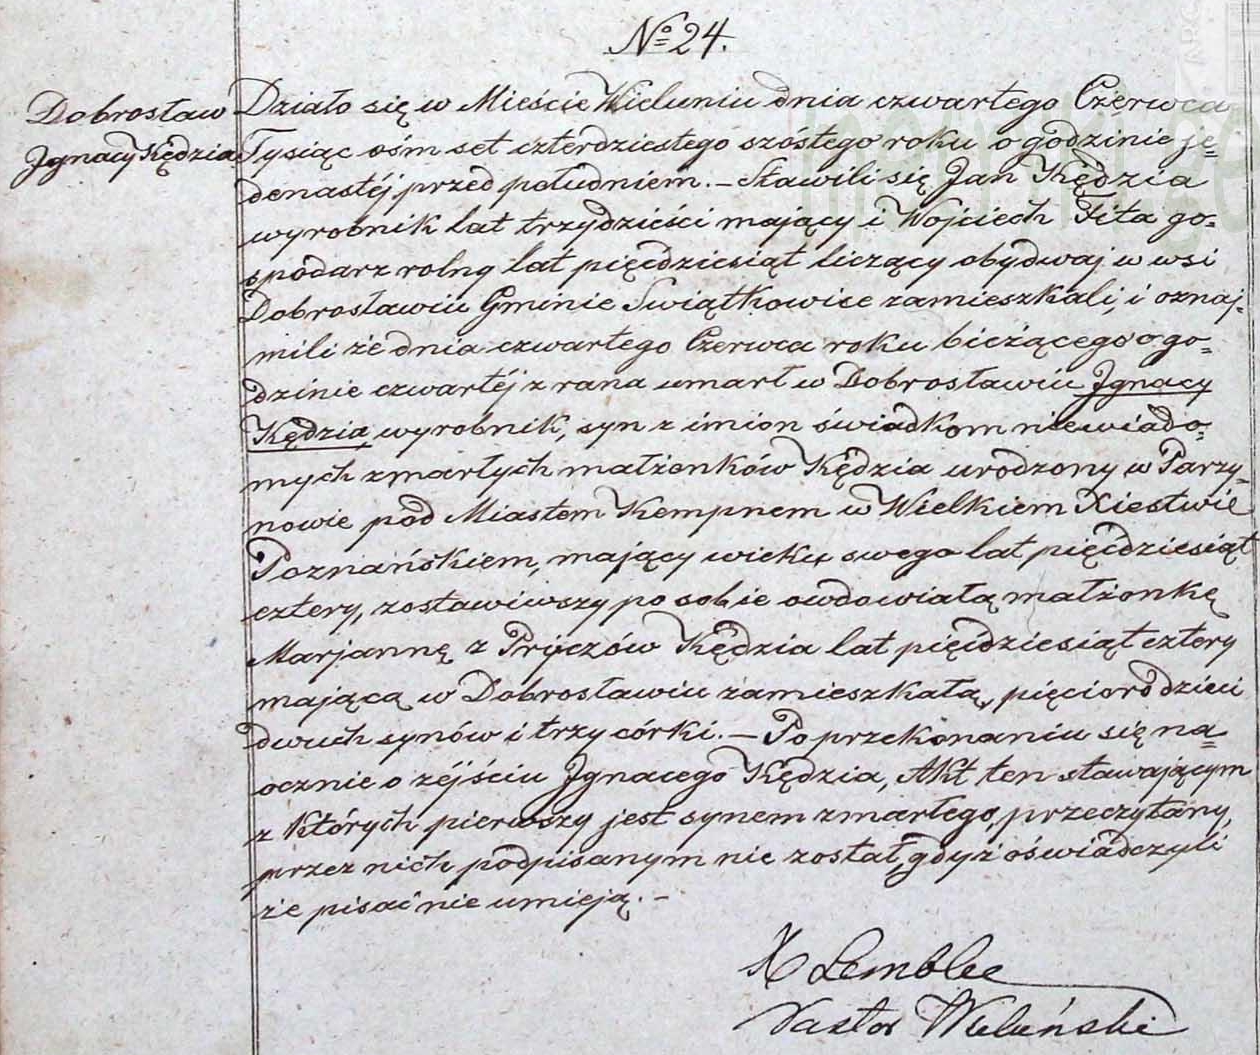 No 24.
Dobrosław
Ignacy Kędzia
Działo się w Mieście Wieluniu dnia czwartego Czerwca
Tysiąc ośm set czterdziestego szóstego roku o godzinie je=
denastéj przed południem. – Stawili się Jan Kędzia
wyrobnik lat trzydzieści mający i Wojciech Fita go=
spodarz rolny lat pięćdziesiąt liczący obydwaj w wsi
Dobrosławiu Gminie Swiątkowice zamieszkali, i oznaj=
mili że dnia czwartego Czerwca roku bieżącego o go=
dzinie czwartéj z rana umarł w Dobrosławiu Ignacy
Kędzia wyrobnik, syn z imion świadkom niewiado=
mych zmarłych małżonków Kędzia urodzony w Parzy=
nowie pod Miastem Kempnem w Wielkiem Xiestwie
Poznańskiem, mający wieku swego lat pięćdziesiąt
cztery, zostawiwszy po sobie owdowiałą małżonkę
Marjannę z Pryczów Kędzia lat pięćdziesiąt cztery
mającą w Dobrosławiu zamieszkałą, pięcioro dzieci
dwuch synów i trzy córki. – Po przekonaniu się na=
ocznie o zéjściu Ignacego Kędzia, Akt ten stawającym
z których pierwszy jest synem zmarłego, przeczytany,
przez nich podpisanym nie został, gdyż oświadczyli
że pisać nie umieją. –
X Lemblee
Pastor Wieluński